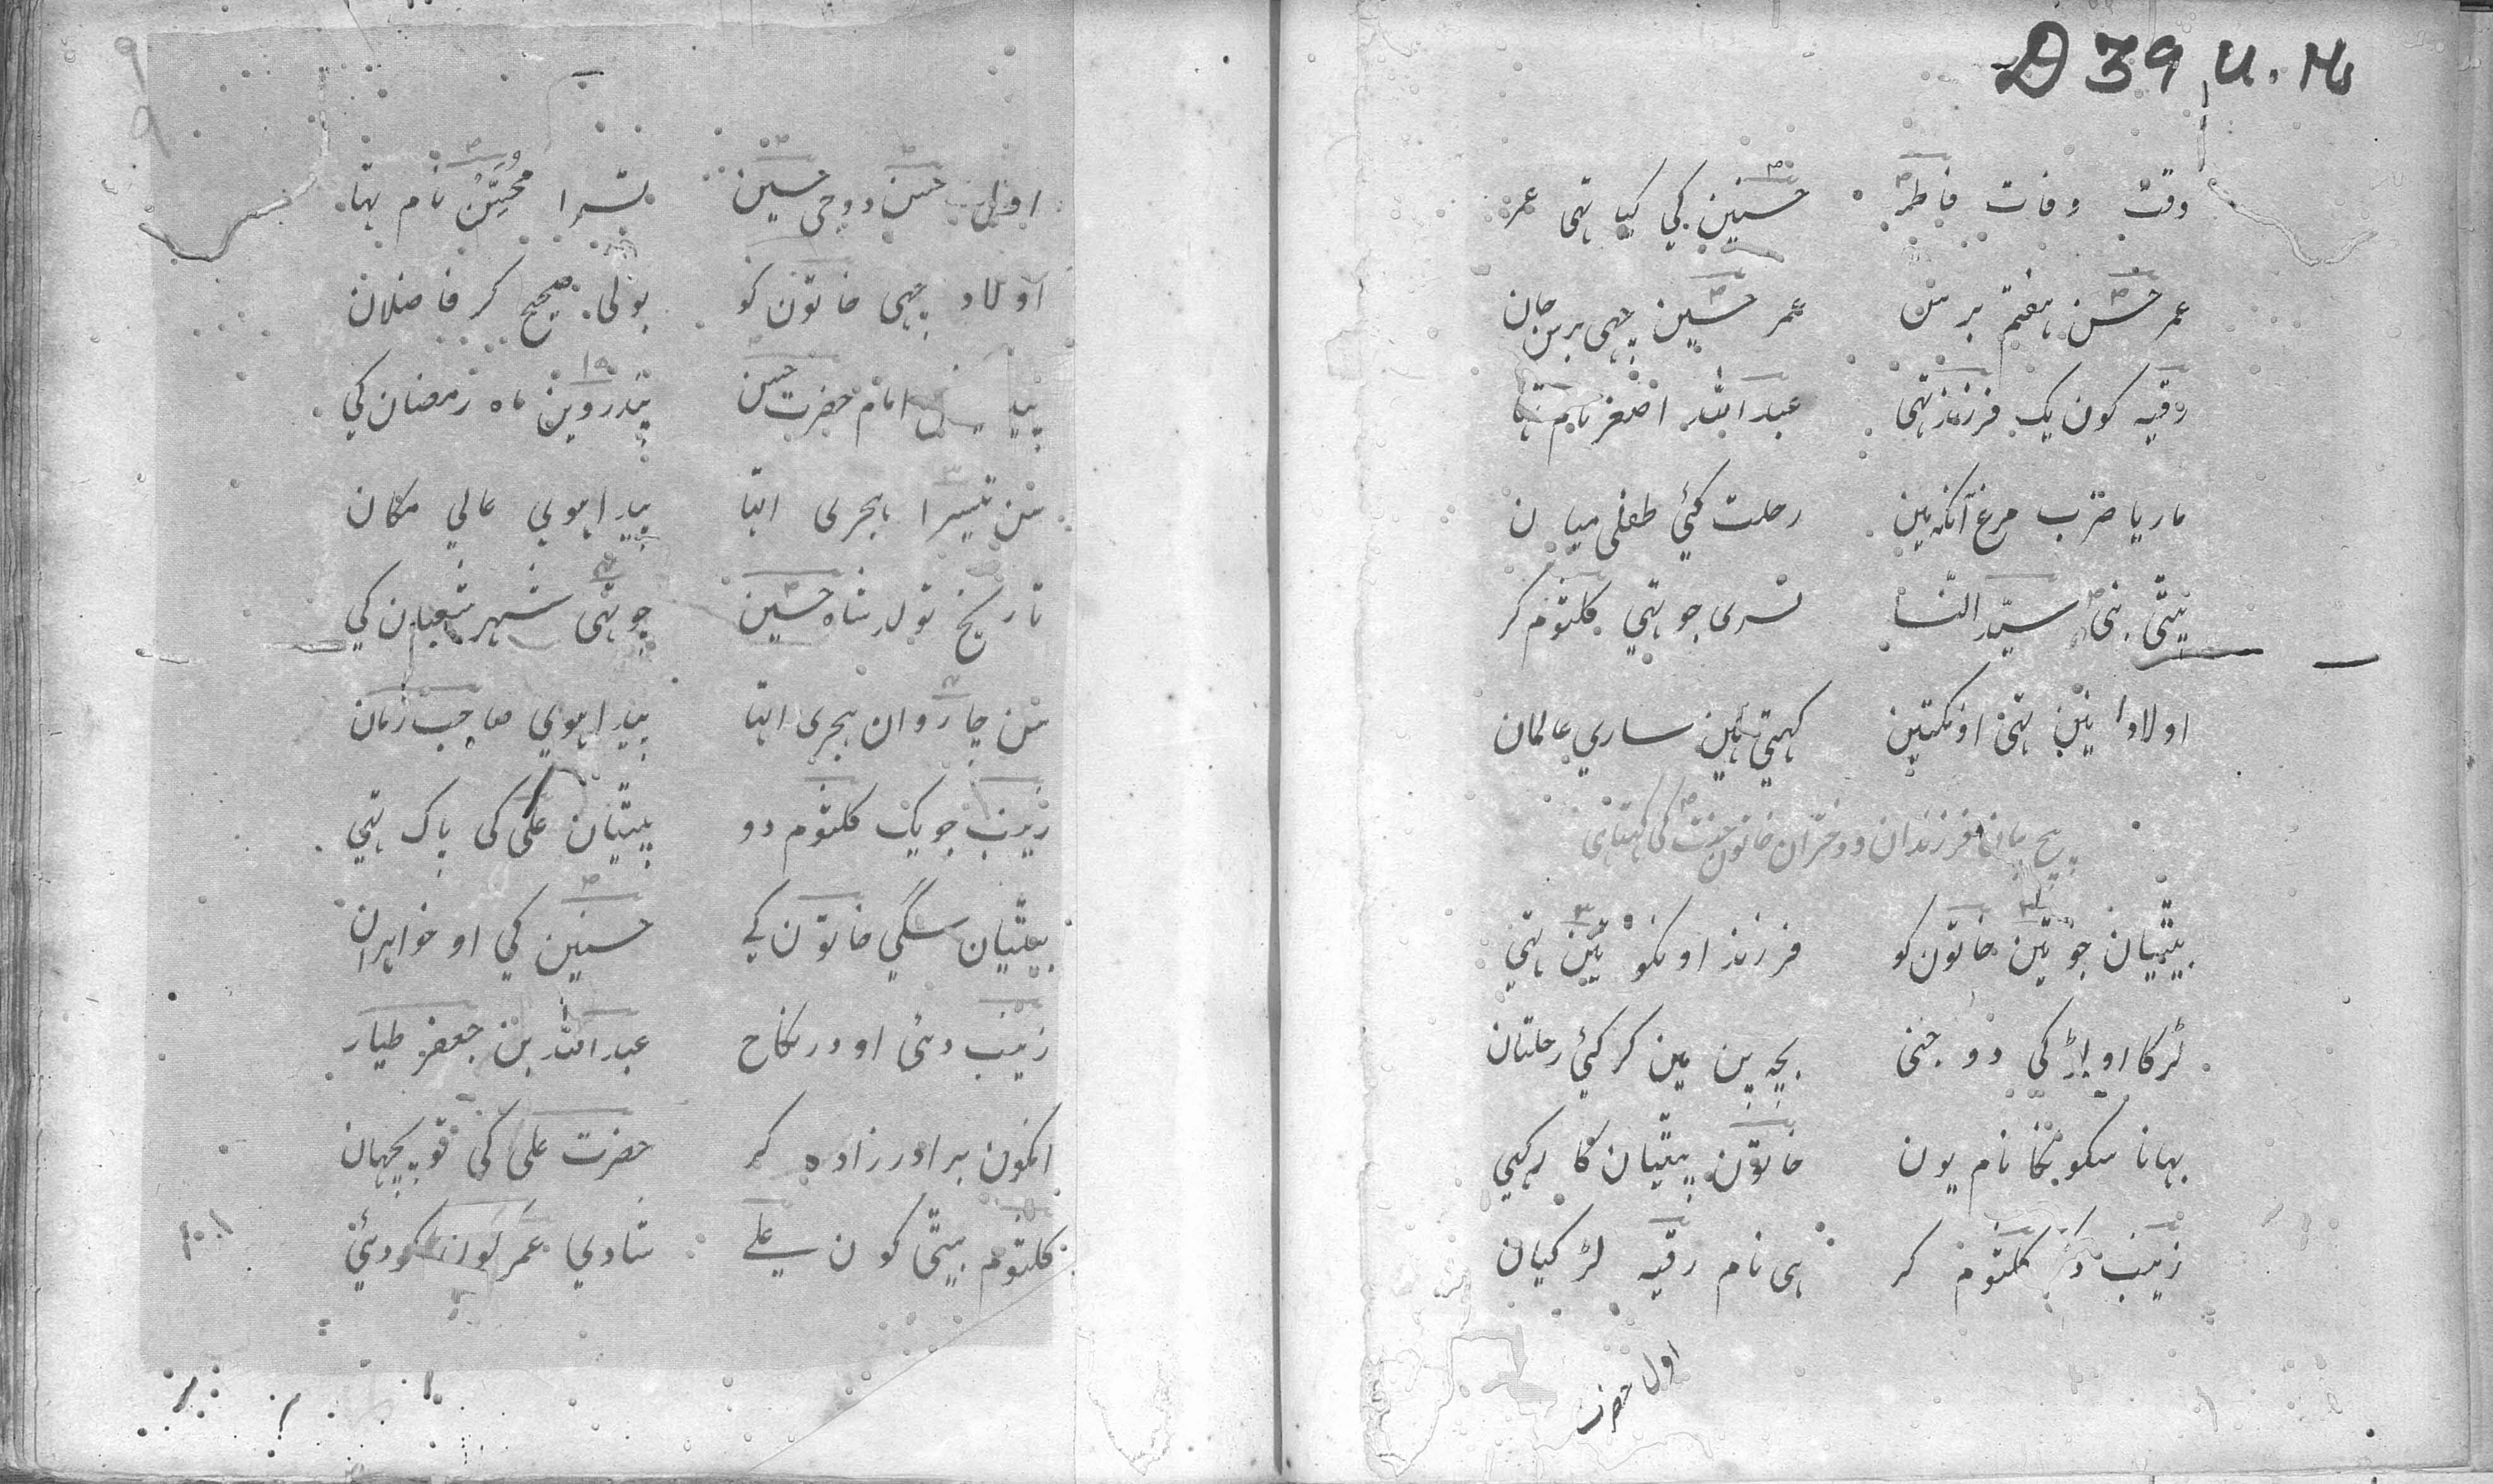 D 39 U. Ms
وقت وفات فاطمہ حسنین کی کیا تہی عمر
عمر حسن ہفتم برس عمر حسین چہی برس جان
رقیہ کون یک فرزند تہی عبد اللہ اصغر نام تہا
ماریا ضرب مرغ آنکہ مین رحلت کئي طفلی میان
بیتی نبی سید النسا تسری جو تہي کلثوم کر
اولاد نین تہی اونکتین کہتي ہین ساري عالمان
فرزندان و دختران خاتون جنت کی
بیتیان جو تین خاتون کو فرزند اونکو تین تہي
لرکا او لڑکی دو جنی بچہ پن مین کر کئي رحلتان
نام یون خاتون بیتیان کا رکہي
زینب کلثوم کر ہی نام رقیہ لڑکیان
اول حضرت
اولی حسن دوجی حسین تسرا محسن نام تہا
اولاد چہی خاتون کو بولی صحیح کر فاضلان
امام حضرت حسن پندروین ماہ رمضان کي
سن تیسرا ہجری اتہا پیدا ہوي عالي مکان
تاریخ تولد شاہ حسین چوتہی شہر شعبان کي
سن چاروان ہجری اتہا پیدا ہوي صاحب زمان
زینب جو یک کلثوم دو بیتیان علی کی پاک تہي
بیتیان سگي خاتون کے حسنین کي او خواہران
زینب دئی او در نکاح عبد اللہ بن جعفر طیار
انکون برادر زادہ کر حضرت علی کی تو پچہان
کلثوم بیتی کون علے شادي عمر کون دئي